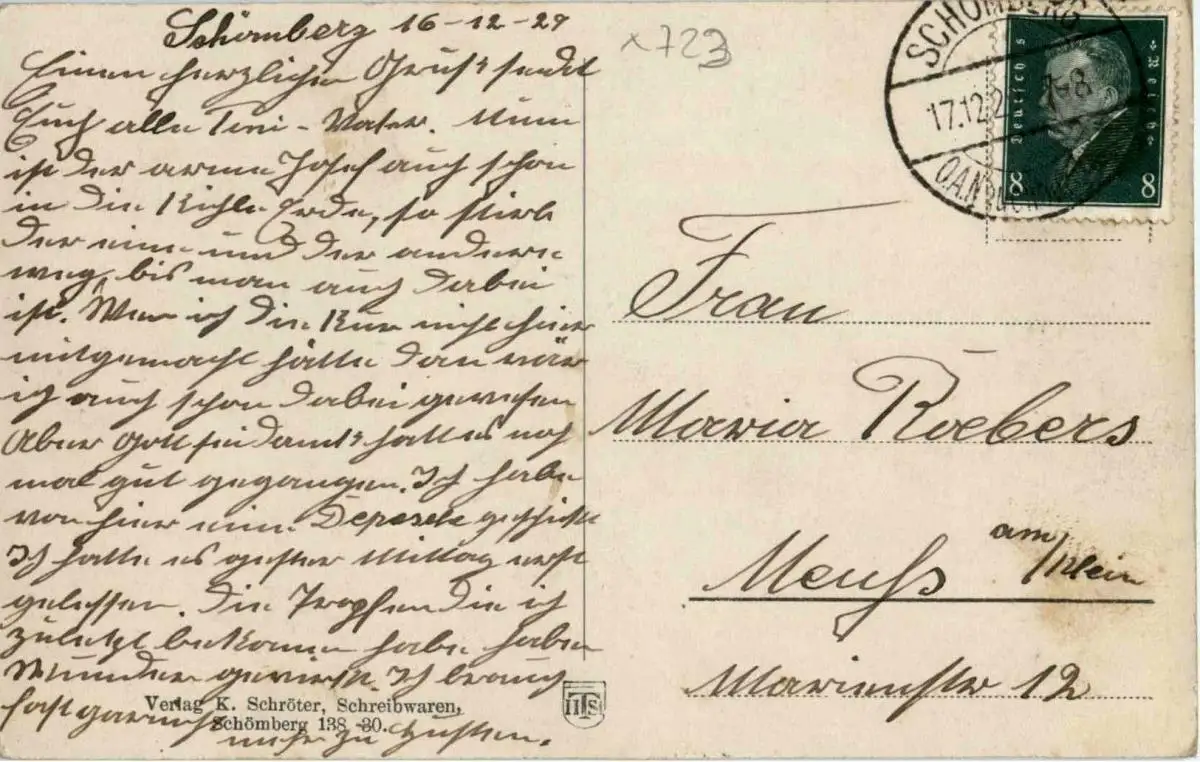 Schömberg 16-12-29
Einen herzlichen Gruß sendet
Euch alle Vater. Nun
ist der arme Josef auch schon
in die Kühle Erde, so stirb
der eine und der andere
weg, bis man auch dabei
ist. Wen ich die Kur nicht hier
mitgemacht hätte dan wär
ich auch schon dabei gewesen
Aber Gott sei dank hatt es noch
mal gut gegangen. Ich habe
von hier eine Depesche geschickt
Ich hatte es gester Mittag erst
gelessen. Die Tropfen die ich
zuletzt bekommen habe haben
Wunder gewirkt. Ich brauch
fast garnicht
mehr zu husten.
x723
SCHÖMBERG
17.12.2 7-8
Deutsches Reich
8 8
Frau
Maria Roebers
Neuss am/Rhein
Marienstr 12
Verlag K. Schröter, Schreibwaren,
Schömberg 138 30.